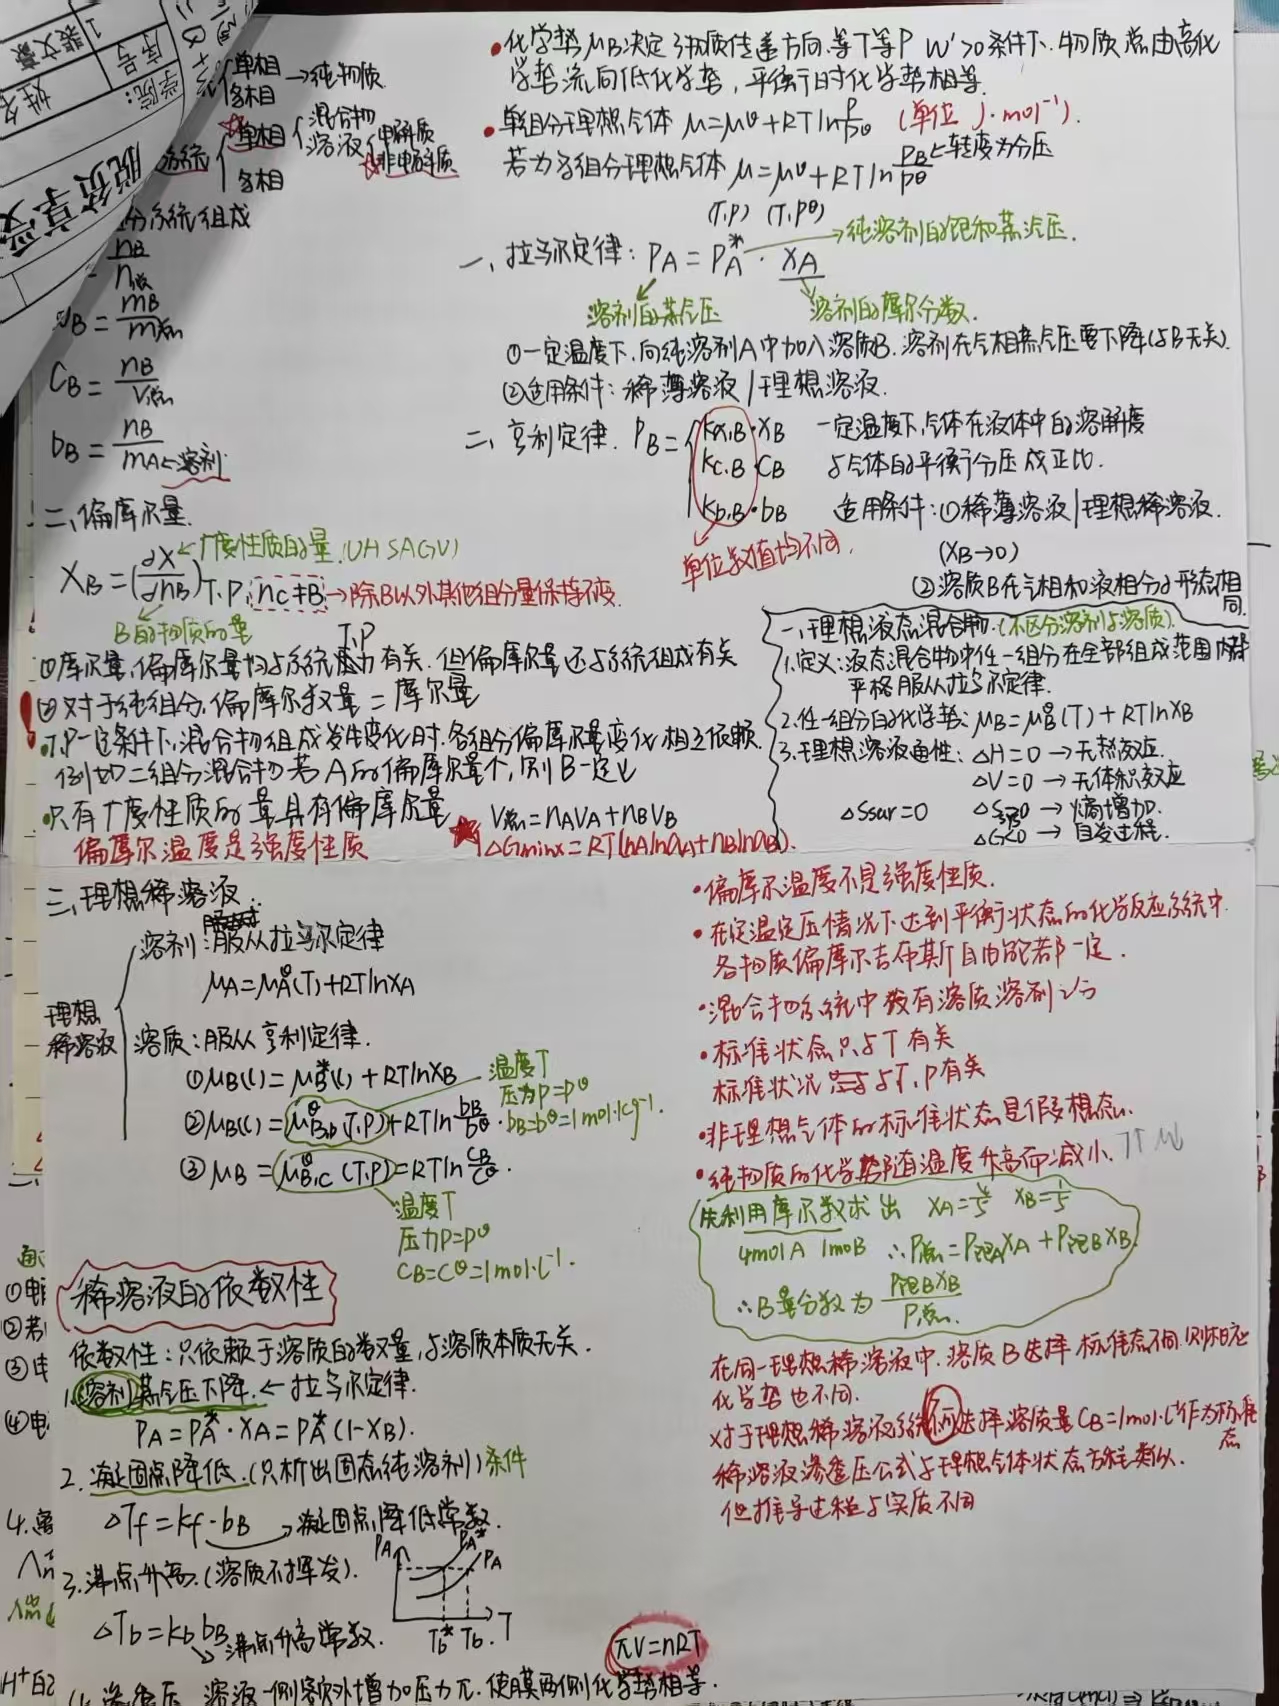 单相
多相
→纯物质
单相
混合物
溶液
电解质
非电解质
系统
多相
脱贫享受
学院:
序号
1
分系统组成
nB
mB
WB = mB/m总
CB = nB/V总
bB = nB/mA←溶剂
二、偏摩尔量
XB = (∂X/∂nB)T.P, nC≠B →除B以外其他组分量保持不变.
广度性质的量.(UHSAGV)
B的物质的量
T,P
①摩尔量,偏摩尔量均与系统压力有关.但偏摩尔量还与系统组成有关
②对于纯组分,偏摩尔数量=摩尔量
•T,P一定条件下,混合物组成发生变化时.各组分偏摩尔量变化相互依赖.
例如二组分混合物若A的偏摩尔量个,则B一定↓
•只有广度性质的量具有偏摩尔量
V总=nAVA+nBVB
偏摩尔温度是强度性质
△Gminx=RT(nAlnaA+nBlnaB).
•化学势μB决定了物质传递方向.等T等P W'>0条件下.物质总由高化
学势流向低化学势,平衡时化学势相等.
•单组分理想气体 μ=μθ+RTln P/Pθ (单位 J·mol⁻¹).
若为多组分理想气体 μ=μθ+RTln PB/Pθ ←转变为分压
(T,P) (T,Pθ)
一、拉乌尔定律: PA = PA* · XA
→纯溶剂的饱和蒸汽压.
溶剂的蒸气压
溶剂的摩尔分数.
①一定温度下,向纯溶剂A中加入溶质B.溶剂在气相蒸气压要下降(与B无关).
②适用条件:稀薄溶液/理想溶液.
二、亨利定律. PB= kx,B·XB 一定温度下,气体在液体中的溶解度
kc,B·CB 与气体的平衡分压成正比.
kb,B·bB 适用条件:①稀薄溶液/理想稀溶液.
单位数值均不同.
(XB→0)
②溶质B在气相和液相分子形态相
同.
一、理想液态混合物.(不区分溶剂与溶质).
1.定义:液态混合物中任一组分在全部组成范围内都
严格服从拉乌尔定律.
2.任一组分的化学势:μB=μBθ(T)+RTlnXB
3.理想溶液通性:△H=0→无热效应.
△V=0→无体积效应
△Ssur=0 △S>0→熵增加.
△G<0→自发过程.
三、理想稀溶液.
理想
稀溶液
溶剂:服从拉乌尔定律
μA=μAθ(T)+RTlnXA
溶质:服从亨利定律.
①μB(l)=μB*(l)+RTlnXB
②μB(l)=μθB,b(T,P)+RTln bB/bθ.
温度T
压力P=Pθ
bB=bθ=1mol·kg⁻¹.
③μB=μθB,C(T,P)=RTln CB/Cθ.
温度T
压力P=Pθ
CB=Cθ=1mol·L⁻¹.
稀溶液的依数性
依数性:只依赖于溶质的数量,与溶质本质无关.
1.溶剂蒸气压下降.←拉乌尔定律.
PA=PA*·XA=PA*(1-XB).
2.凝固点降低.(只析出固态纯溶剂)条件
△Tf=kf·bB→凝固点降低常数.
3.沸点升高.(溶质不挥发).
△Tb=kb bB 沸点升高常数.
PA PA* PA
Tb* Tb. T
πV=nRT
4.渗透压 溶液一侧额外增加压力π.使膜两侧化学势相等.
•偏摩尔温度不是强度性质.
•在定温定压情况下达到平衡状态的化学反应系统中.
各物质偏摩尔吉布斯自由能都一定.
•混合物系统中没有溶质溶剂之分
•标准状态只与T有关
标准状况与T,P有关
•非理想气体的标准状态是假想态.
•纯物质的化学势随温度升高而减小.T↑μ↓
先利用摩尔数求出 XA=4/5 XB=1/5
4molA 1molB ∴P总=P纯AXA+P纯BXB
∴B量分数为 P纯BXB/P总.
在同一理想稀溶液中.溶质B选择标准态不同.则对应
化学势也不同.
对于理想稀溶液系统可选择溶质量CB=1mol·L⁻¹作为标准
态
稀溶液渗透压公式与理想气体状态方程类似.
但推导过程与实质不同
①电
②若
③电
④电
4.离
H⁺的